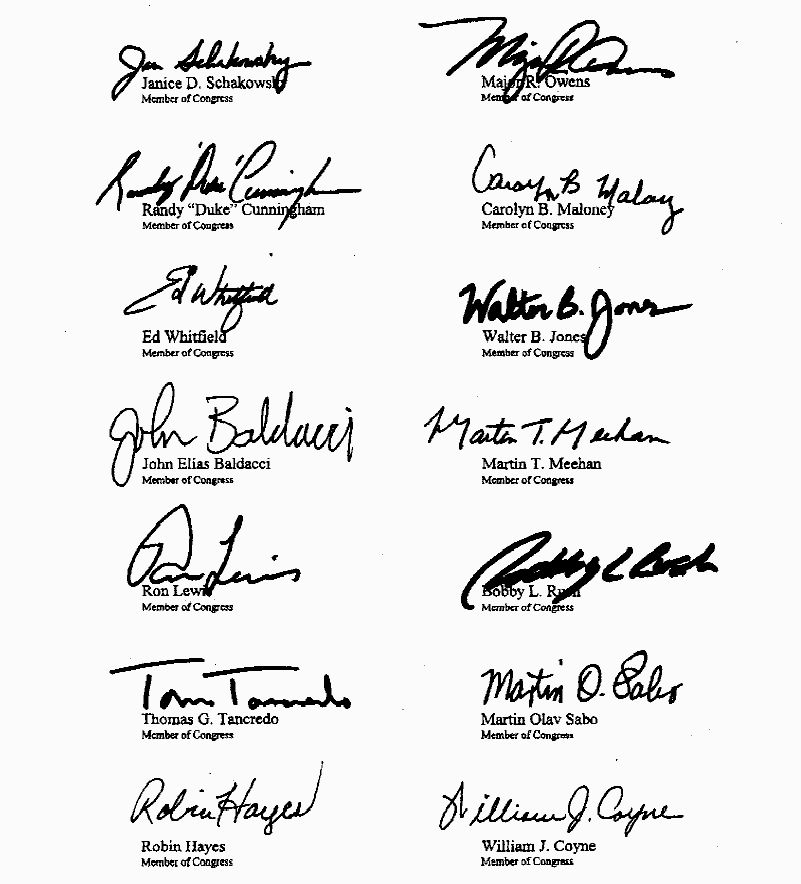 Jan Schakowsky
Janice D. Schakowsky
Member of Congress
Major R. Owens
Major R. Owens
Member of Congress
Randy "Duke" Cunningham
Randy "Duke" Cunningham
Member of Congress
Carolyn B Maloney
Carolyn B. Maloney
Member of Congress
Ed Whitfield
Ed Whitfield
Member of Congress
Walter B. Jones
Walter B. Jones
Member of Congress
John Baldacci
John Elias Baldacci
Member of Congress
Martin T. Meehan
Martin T. Meehan
Member of Congress
Ron Lewis
Ron Lewis
Member of Congress
Bobby L Rush
Bobby L. Rush
Member of Congress
Tom Tancredo
Thomas G. Tancredo
Member of Congress
Martin O. Sabo
Martin Olav Sabo
Member of Congress
Robin Hayes
Robin Hayes
Member of Congress
William J. Coyne
William J. Coyne
Member of Congress